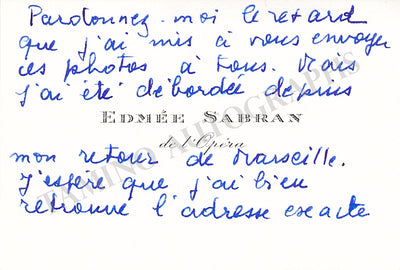 Pardonnez-moi le retard
que j'ai mis à vous envoyer
ces photos à tous. Mais
j'ai été débordée depuis
EDMÉE SABRAN
de l'Opéra
mon retour de Marseille.
J'espère que j'ai bien
retrouvé l'adresse exacte
TAMINO AUTOGRAPHS